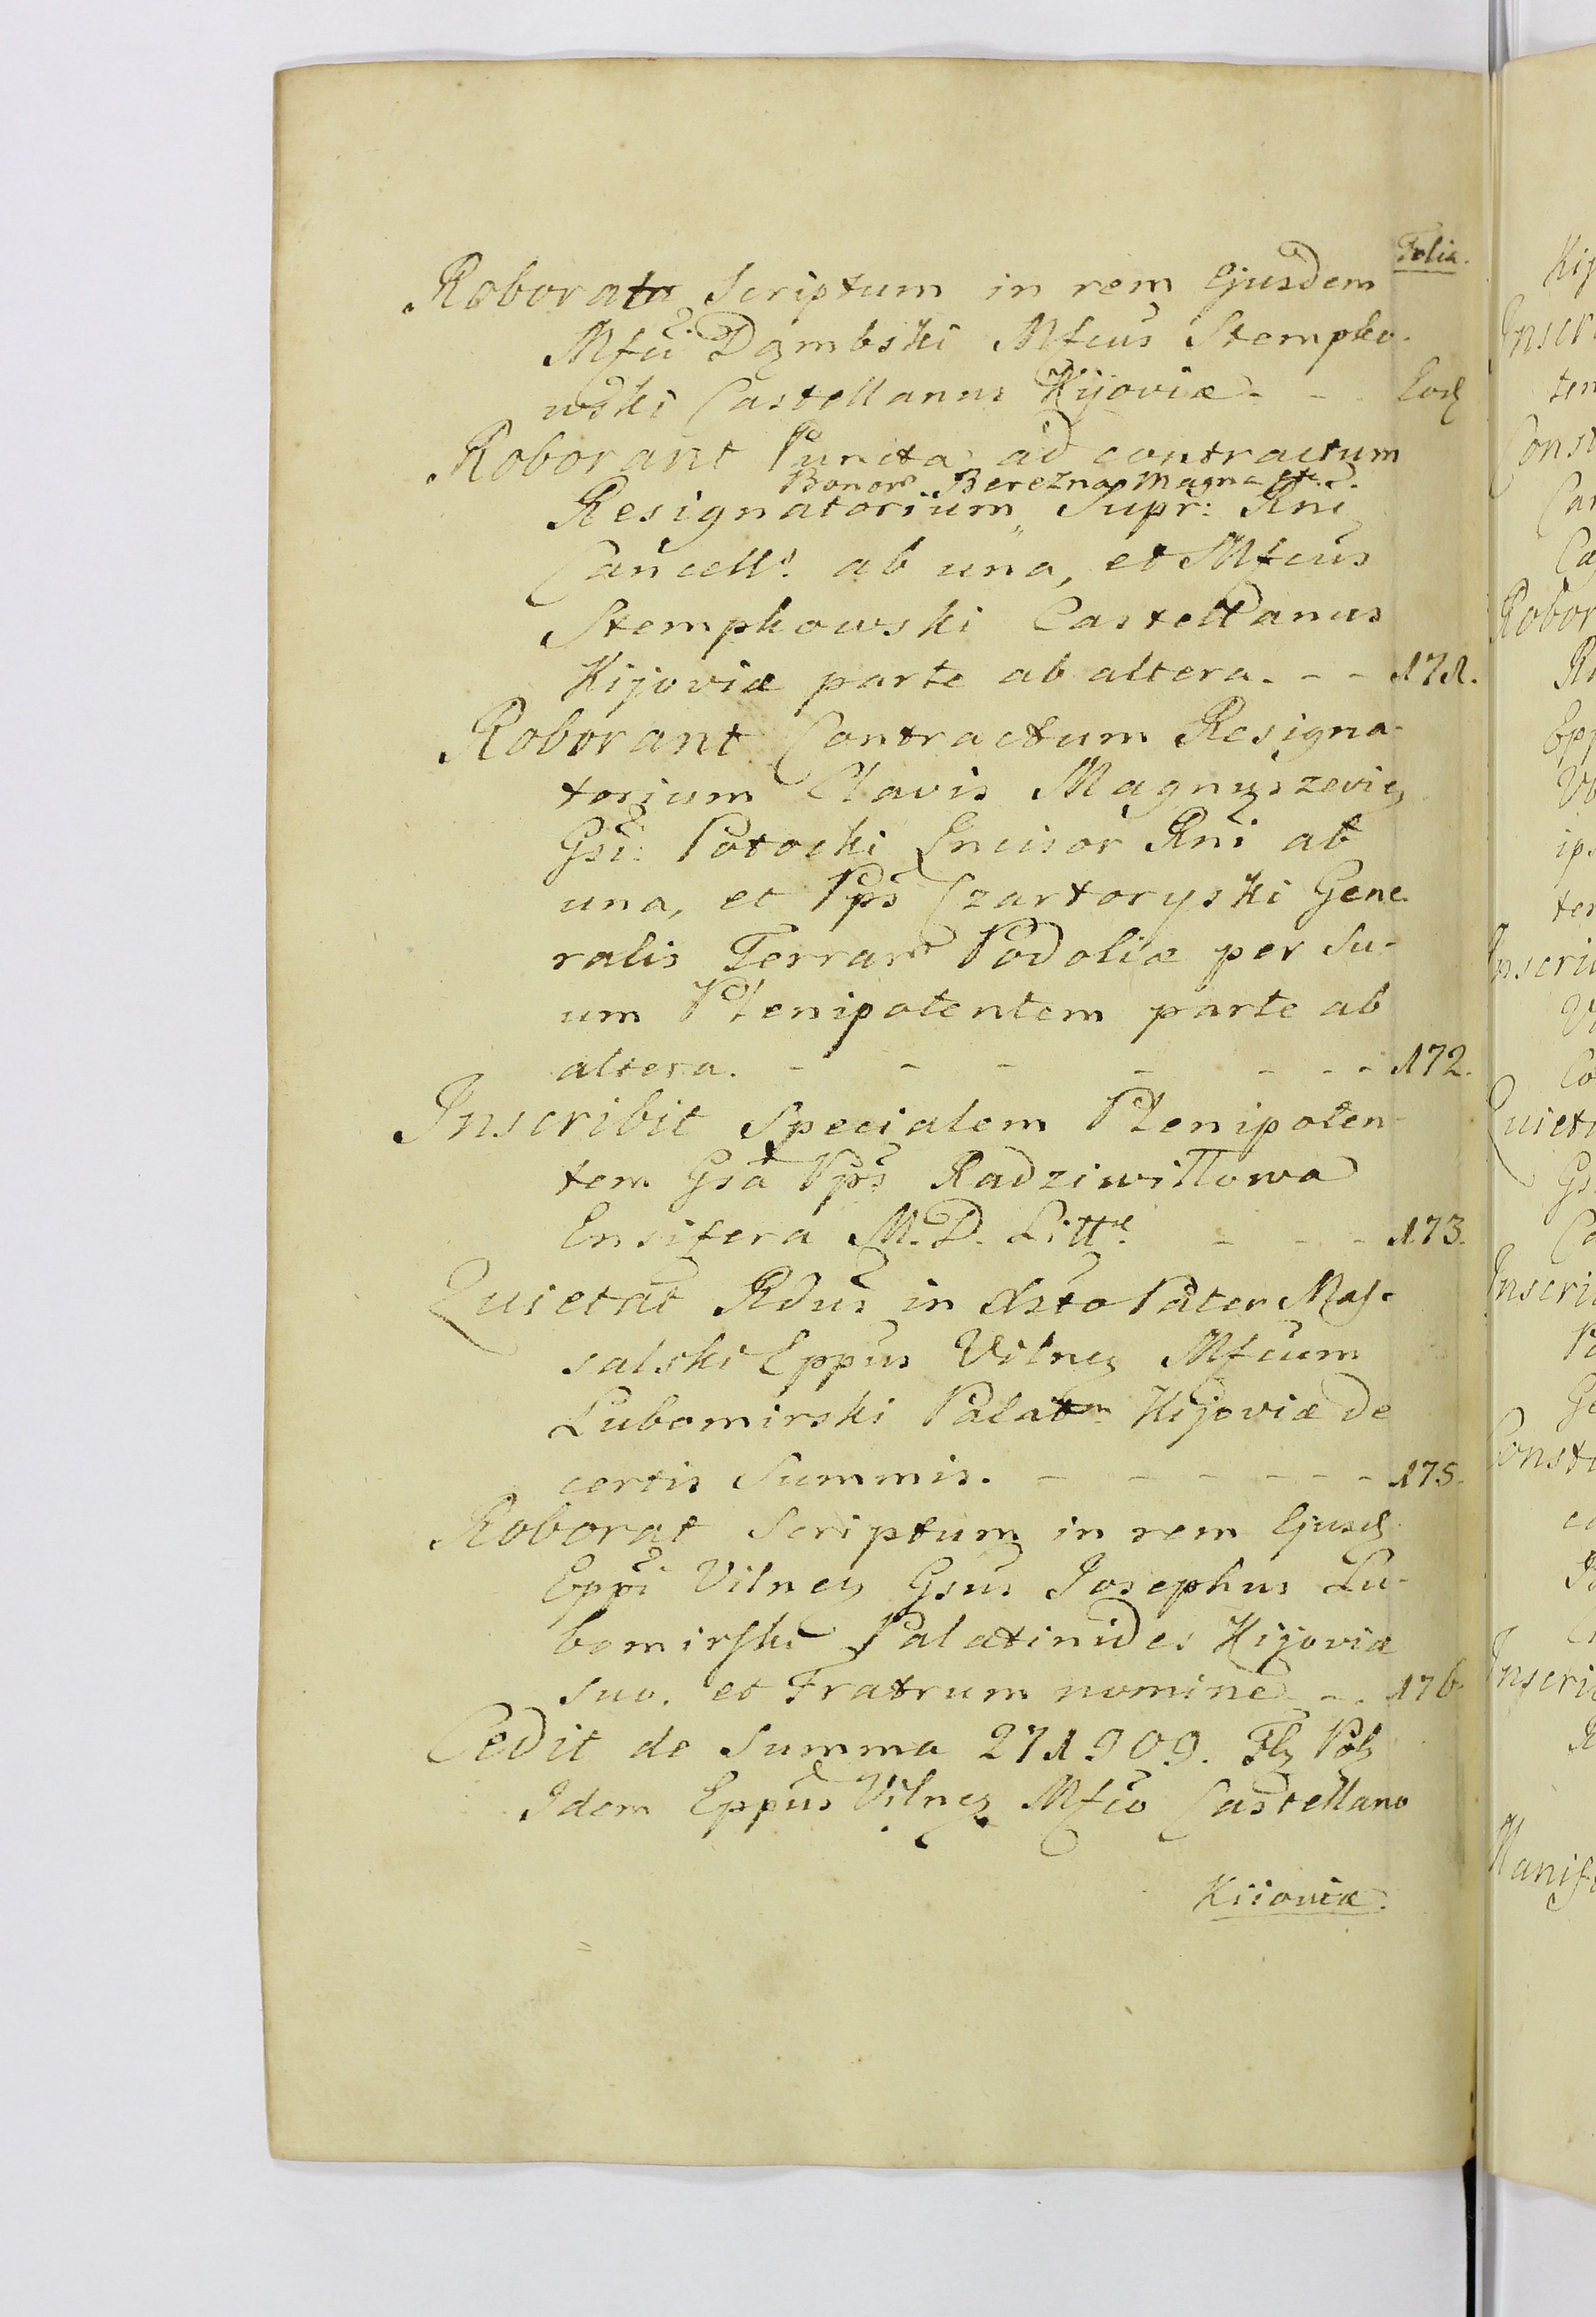 Folia.
Roborata Scriptum in rem Ejusdem
Mfci Dąmbski Mfcus Stempko-
wski Castellanus Kijoviæ - - Eod
Roborant Puncta ad contractum
Bonor Berezna Magna etc.
Resignatorium Supr: Rni
Cancell: ab una, et Mfcus
Stempkowski Castellanus
Kijoviæ parte ab altera. - - 171.
Roborant Contractum Resigna-
torium Clavis Magnuszevien
Gsi: Potocki Incisor Rni ab
una, et Pps Czartoryski Gene-
ralis Terrar Podoliæ per su-
um Plenipotentem parte ab
altera. - - - - - - - 172.
Inscribit Specialem Plenipoten-
tem Gsa Pps Radziwiłłowa
Ensifera M. D. Litt - - - 173.
Quietat Rdus in Chsto Pater Mas-
salski Eppus Vilnen Mfcum
Lubomirski Palatm Kijoviæ de
certis Summis. - - - - - - 175.
Roborat Scriptum in rem Ejusd
Eppi Vilnen Gsus Josephus Lu-
bomirski Palatinides Kijoviæ
suo. et Fratrum nomine - - 176.
Cedit de Summa 271909. Fl Pol
Idem Eppus Vilnen Mfco Castellano
Kijoviæ.